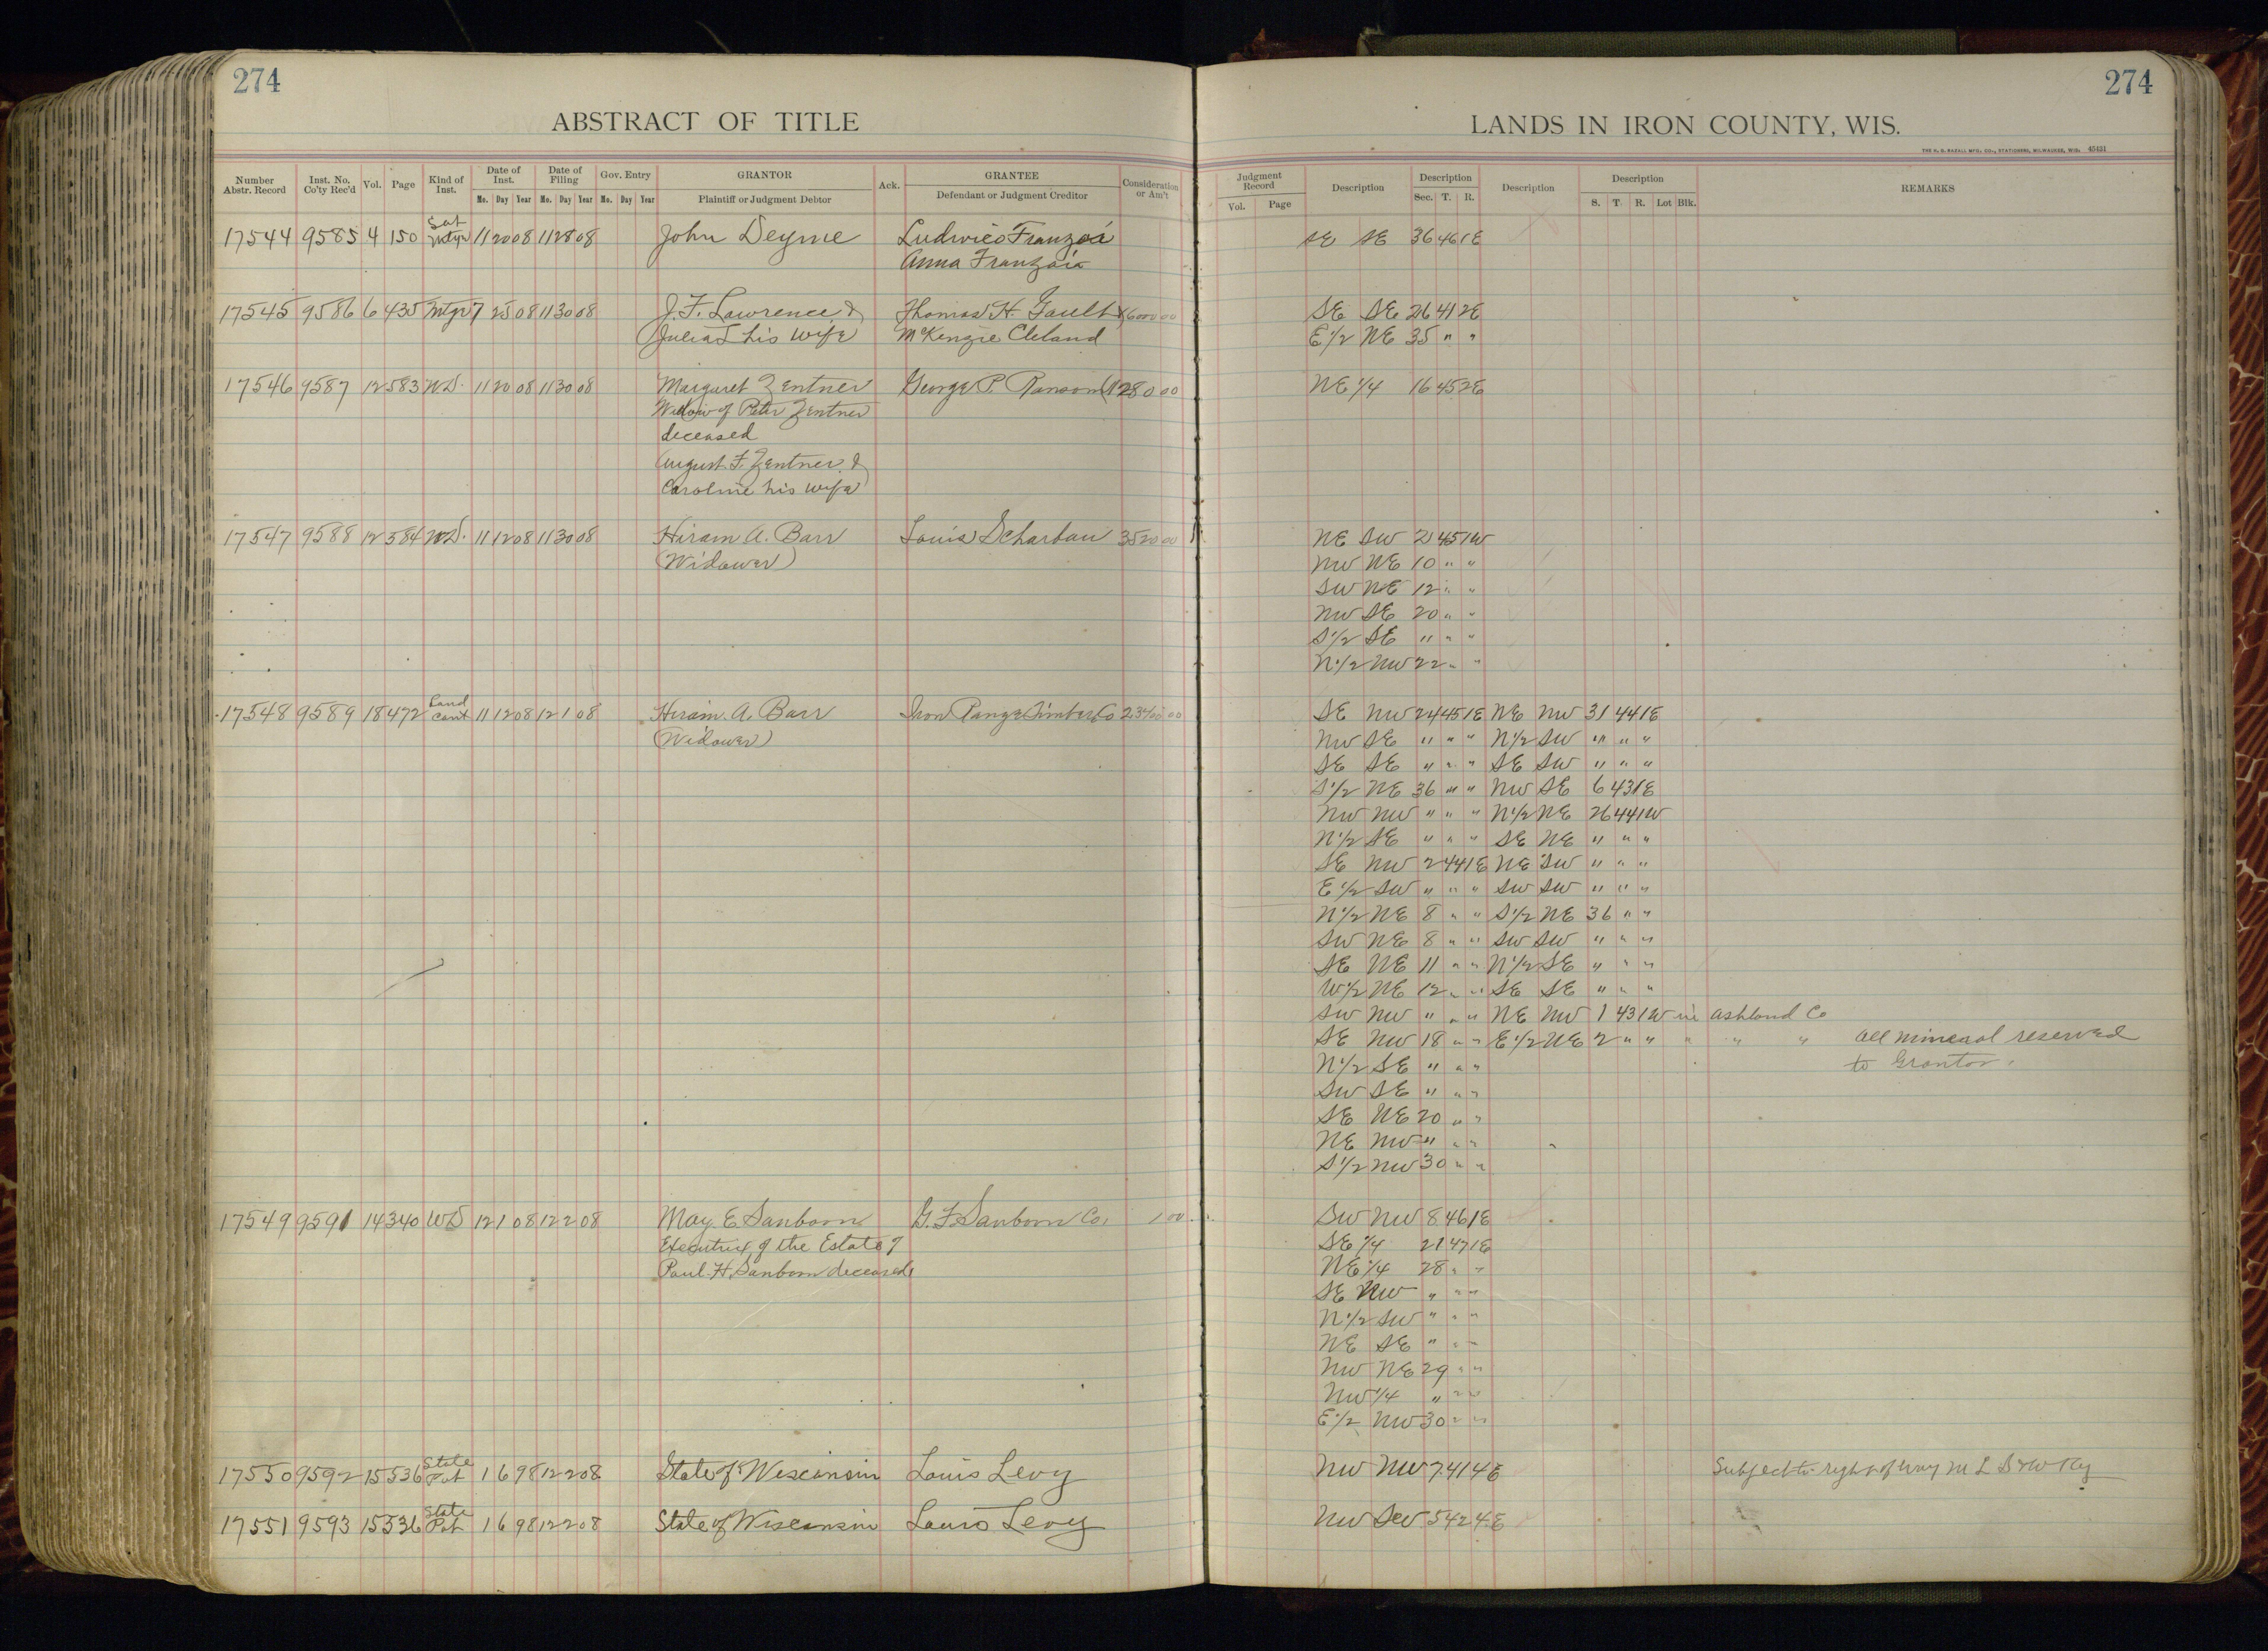 274
274
ABSTRACT OF TITLE
LANDS IN IRON COUNTY, WIS.
THE H. G. RAZALL MFG. CO., STATIONERS, MILWAUKEE, WIS. 45431
Number Abstr. Record | Inst. No. Co'ty Rec'd | Vol. | Page | Kind of Inst. | Date of Inst. Mo. Day Year | Date of Filing Mo. Day Year | Gov. Entry Mo. Day Year | GRANTOR Plaintiff or Judgment Debtor | Ack. | GRANTEE Defendant or Judgment Creditor | Consideration or Am't
Judgment Record Vol. Page | Description | Description Sec. T. R. | Description | Description S. T. R. Lot Blk. | REMARKS
17544 9585 4 150 Sat Mtge 11 20 08 11 28 08 John Deyme Ludwico Franzoia SE SE 36 46 1E
Anna Franzoia
17545 9586 6 435 Mtge 7 25 08 11 30 08 J. F. Lawrence & Thomas H. Gault & 6000 00 SE SE 26 41 2E
Julia T his wife McKenzie Cleland E 1/2 NE 35 " "
17546 9587 12 583 WD. 11 20 08 11 30 08 Margaret Zentner George P. Ransom 1280 00 NE 1/4 16 45 2E
Widow of Peter Zentner
deceased
August F. Zentner &
Caroline his wife
17547 9588 12 584 WD. 11 12 08 11 30 08 Hiram A. Barr Louis Scharbau 3520 00 NE SW 2 45 1W
(Widower) NW NE 10 " "
SW NE 12 " "
NW SE 20 " "
S 1/2 SE " " "
N 1/2 NW 22 " "
17548 9589 18 472 Land Cont 11 12 08 12 1 08 Hiram A. Barr Iron Range Timber Co 23400 00 SE NW 24 45 1E NE NW 31 44 1E
(Widower) NW SE " " " N 1/2 SW " " "
SE SE " " " SE SW " " "
S 1/2 NE 36 " " NW SE 6 43 1E
NW NW " " " N 1/2 NE 26 44 1W
N 1/2 SE " " " SE NE " " "
SE NW 2 44 1E NE SW " " "
E 1/2 SW " " " SW SW " " "
N 1/2 NE 8 " " S 1/2 NE 36 " "
SW NE 8 " " SW SW " " "
SE NE 11 " " N 1/2 SE " " "
W 1/2 NE 12 " " SE SE " " "
SW NW " " " NE NW 1 43 1W in Ashland Co
SE NW 18 " " E 1/2 NE 2 " " " " " All mineral reserved
N 1/2 SE " " " to Grantor.
SW SE " " "
SE NE 20 " "
NE NW " " "
S 1/2 NW 30 " "
17549 9591 14 340 WD 12 1 08 12 2 08 May E Sanborn G. F. Sanborn Co. 1 00 SW NW 8 46 1E
Executrix of the Estate of SE 1/4 21 47 1E
Paul H. Sanborn deceased NE 1/4 28 " "
SE NW " " "
N 1/2 SW " " "
NE SE " " "
NW NE 29 " "
NW 1/4 " " "
E 1/2 NW 30 " "
17550 9592 15 536 State Pat 1 6 98 12 2 08 State of Wisconsin Louis Levy NW NW 7 41 4E Subject to right of way M L S & W Ry
17551 9593 15 536 State Pat 1 6 98 12 2 08 State of Wisconsin Louis Levy NW SW 5 42 4E